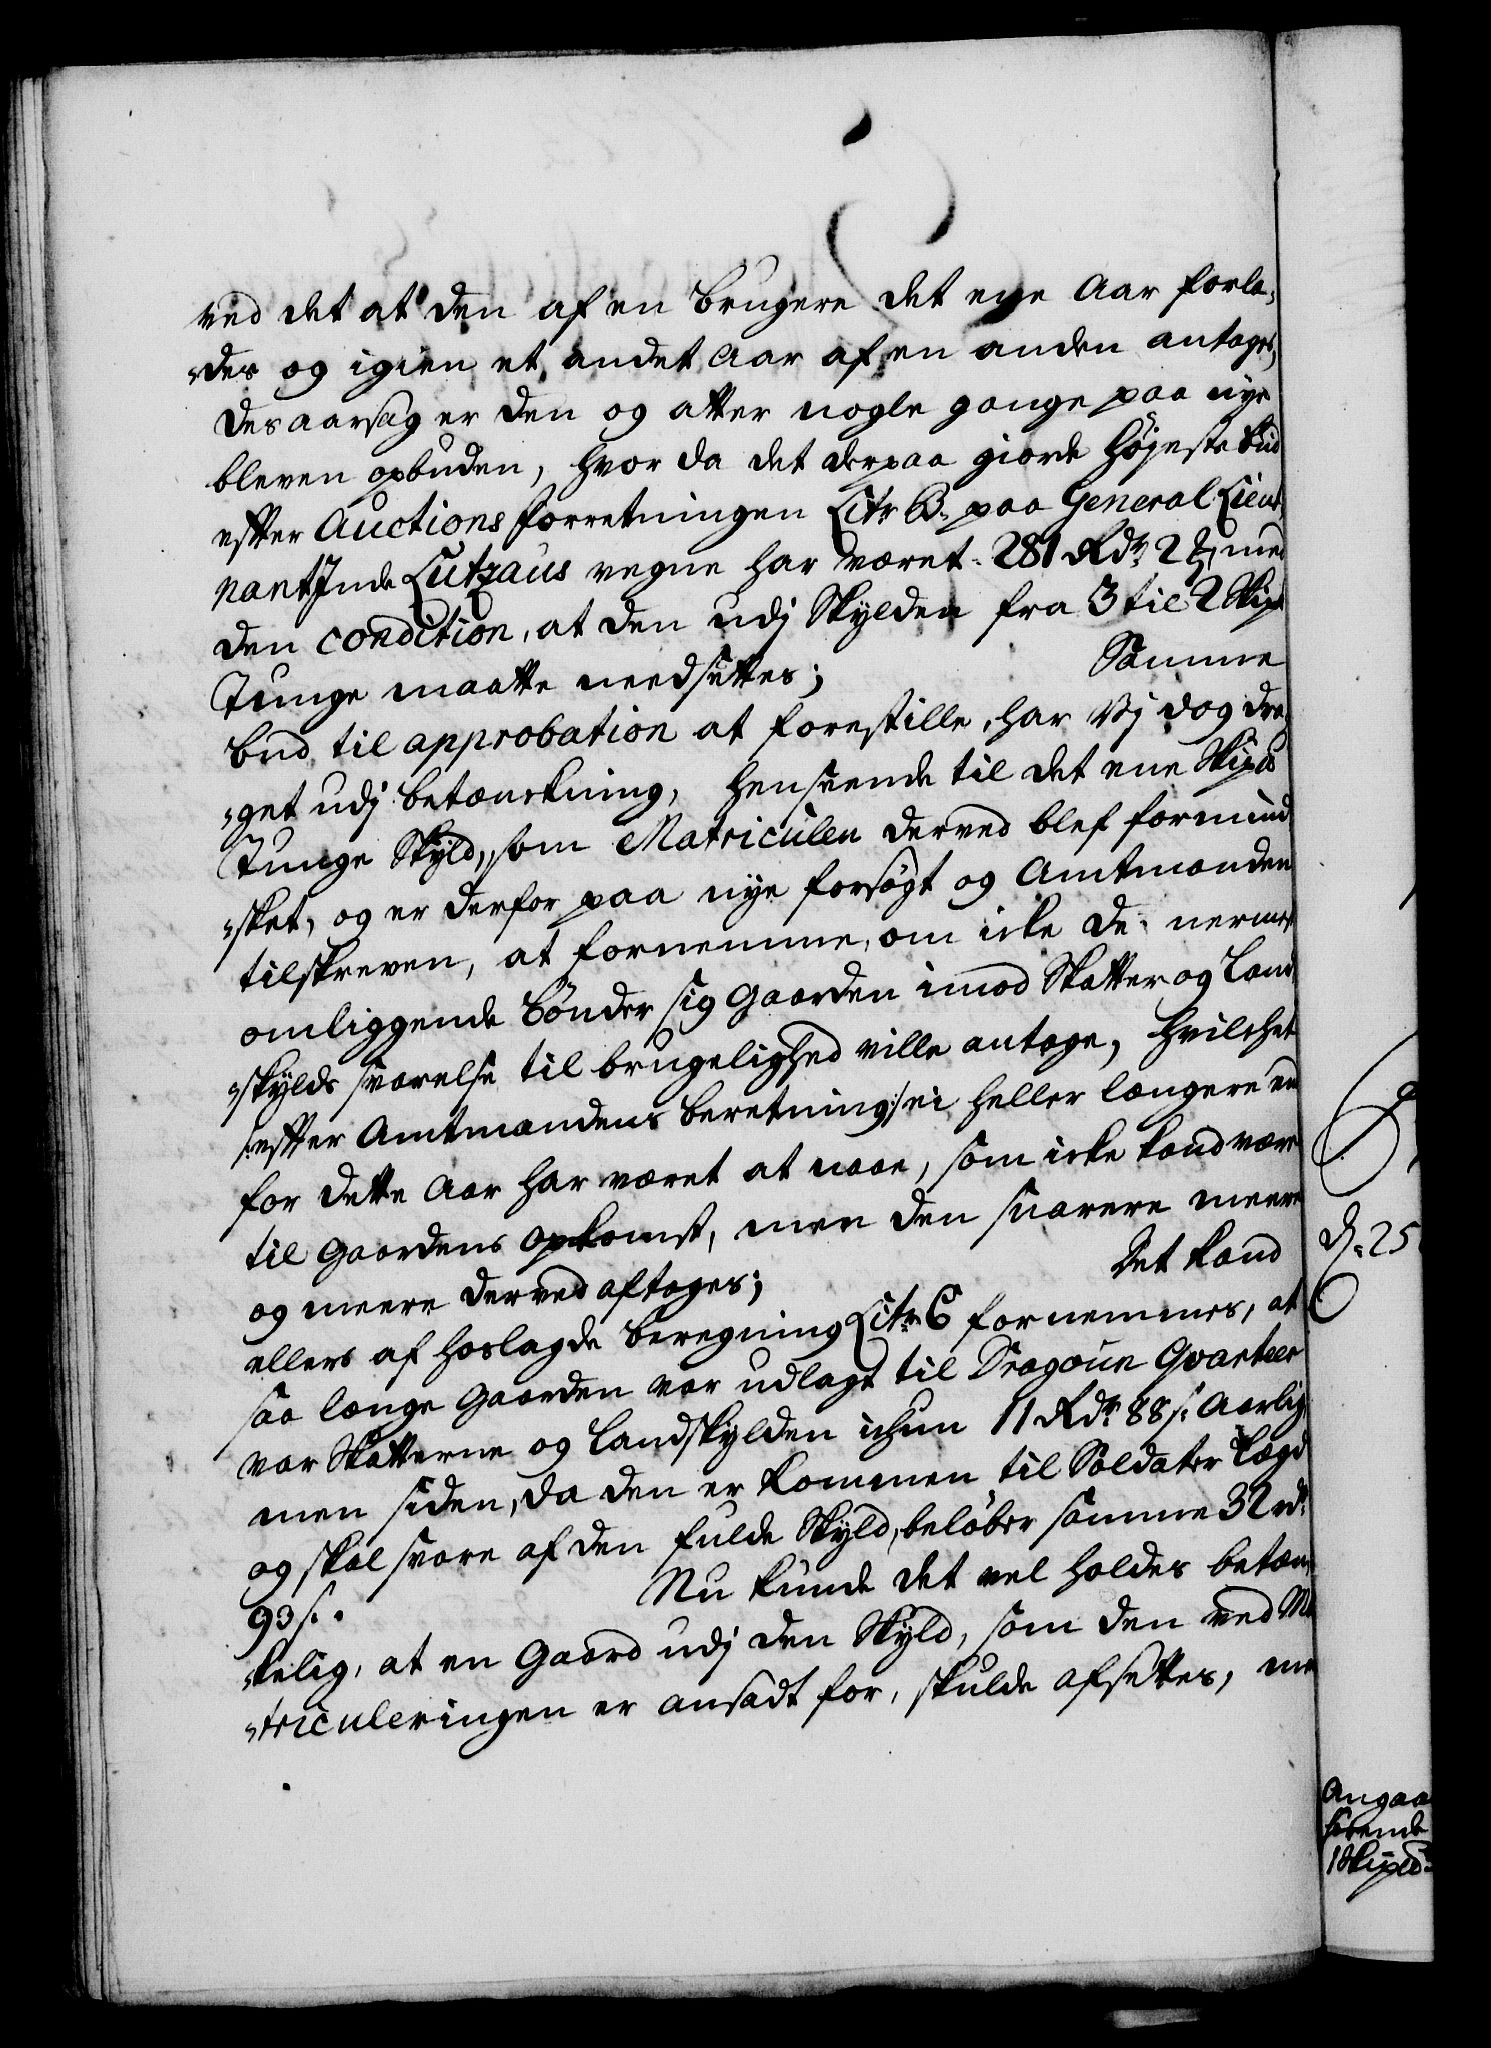 ved det at den af en brugere det ene Aar forla,
„des og igien et andet Aar af en anden antages,
Des aarsag er den og atter nogle gange paa nye
bleven opbuden, hvor da det derpaa giorde højeste bud
efter Auctions forretningen Litr B. paa General Lieut
nant Inde Lutzaus vegne har været 281 Rdr 2 # med
den condition, at den udj Skylden fra 3 til 2 Skipd
Tunge maatte needsettes; Samme
bud til approbation at forestille, har Vj dog dra,
„get udj betænkning, henseende til det ene Skipd
Tunge Skyld, som Matriculen derved blef formind
„sket, og er derfor paa nye forsøgt og Amtmanden
tilskreven, at fornemme, om icke de nermest
omliggende bønder sig Gaarden imod Skatter og Land
„skylds svarelse til brugelighed ville antage, hvilchet
/:efter Amtmandens beretning:/ ei heller længere en
for dette Aar har været at naae, som icke kand være
til Gaardens opkomst, men den snarere meere
og meere derved aftages; Det kand
ellers af hoslagde beregning Litr C fornemmes, at
saa længe Gaarden var udlagt til Dragoun Qvarteer
var Skatterne og Landskylden ichun 11 Rdr 88 s. Aarlig,
men siden, da den er kommen til Soldater Lægd
og skal svare af den fulde Skyld, beløber samme 32 rdr
93 s. Nu kunde det vel holdes betæn,
„kelig, at en Gaard udj den Skyld, som den ved Ma
„triculeringen er ansadt for, skulde afsettes, me
D. 25
Angaa
1 Skipd